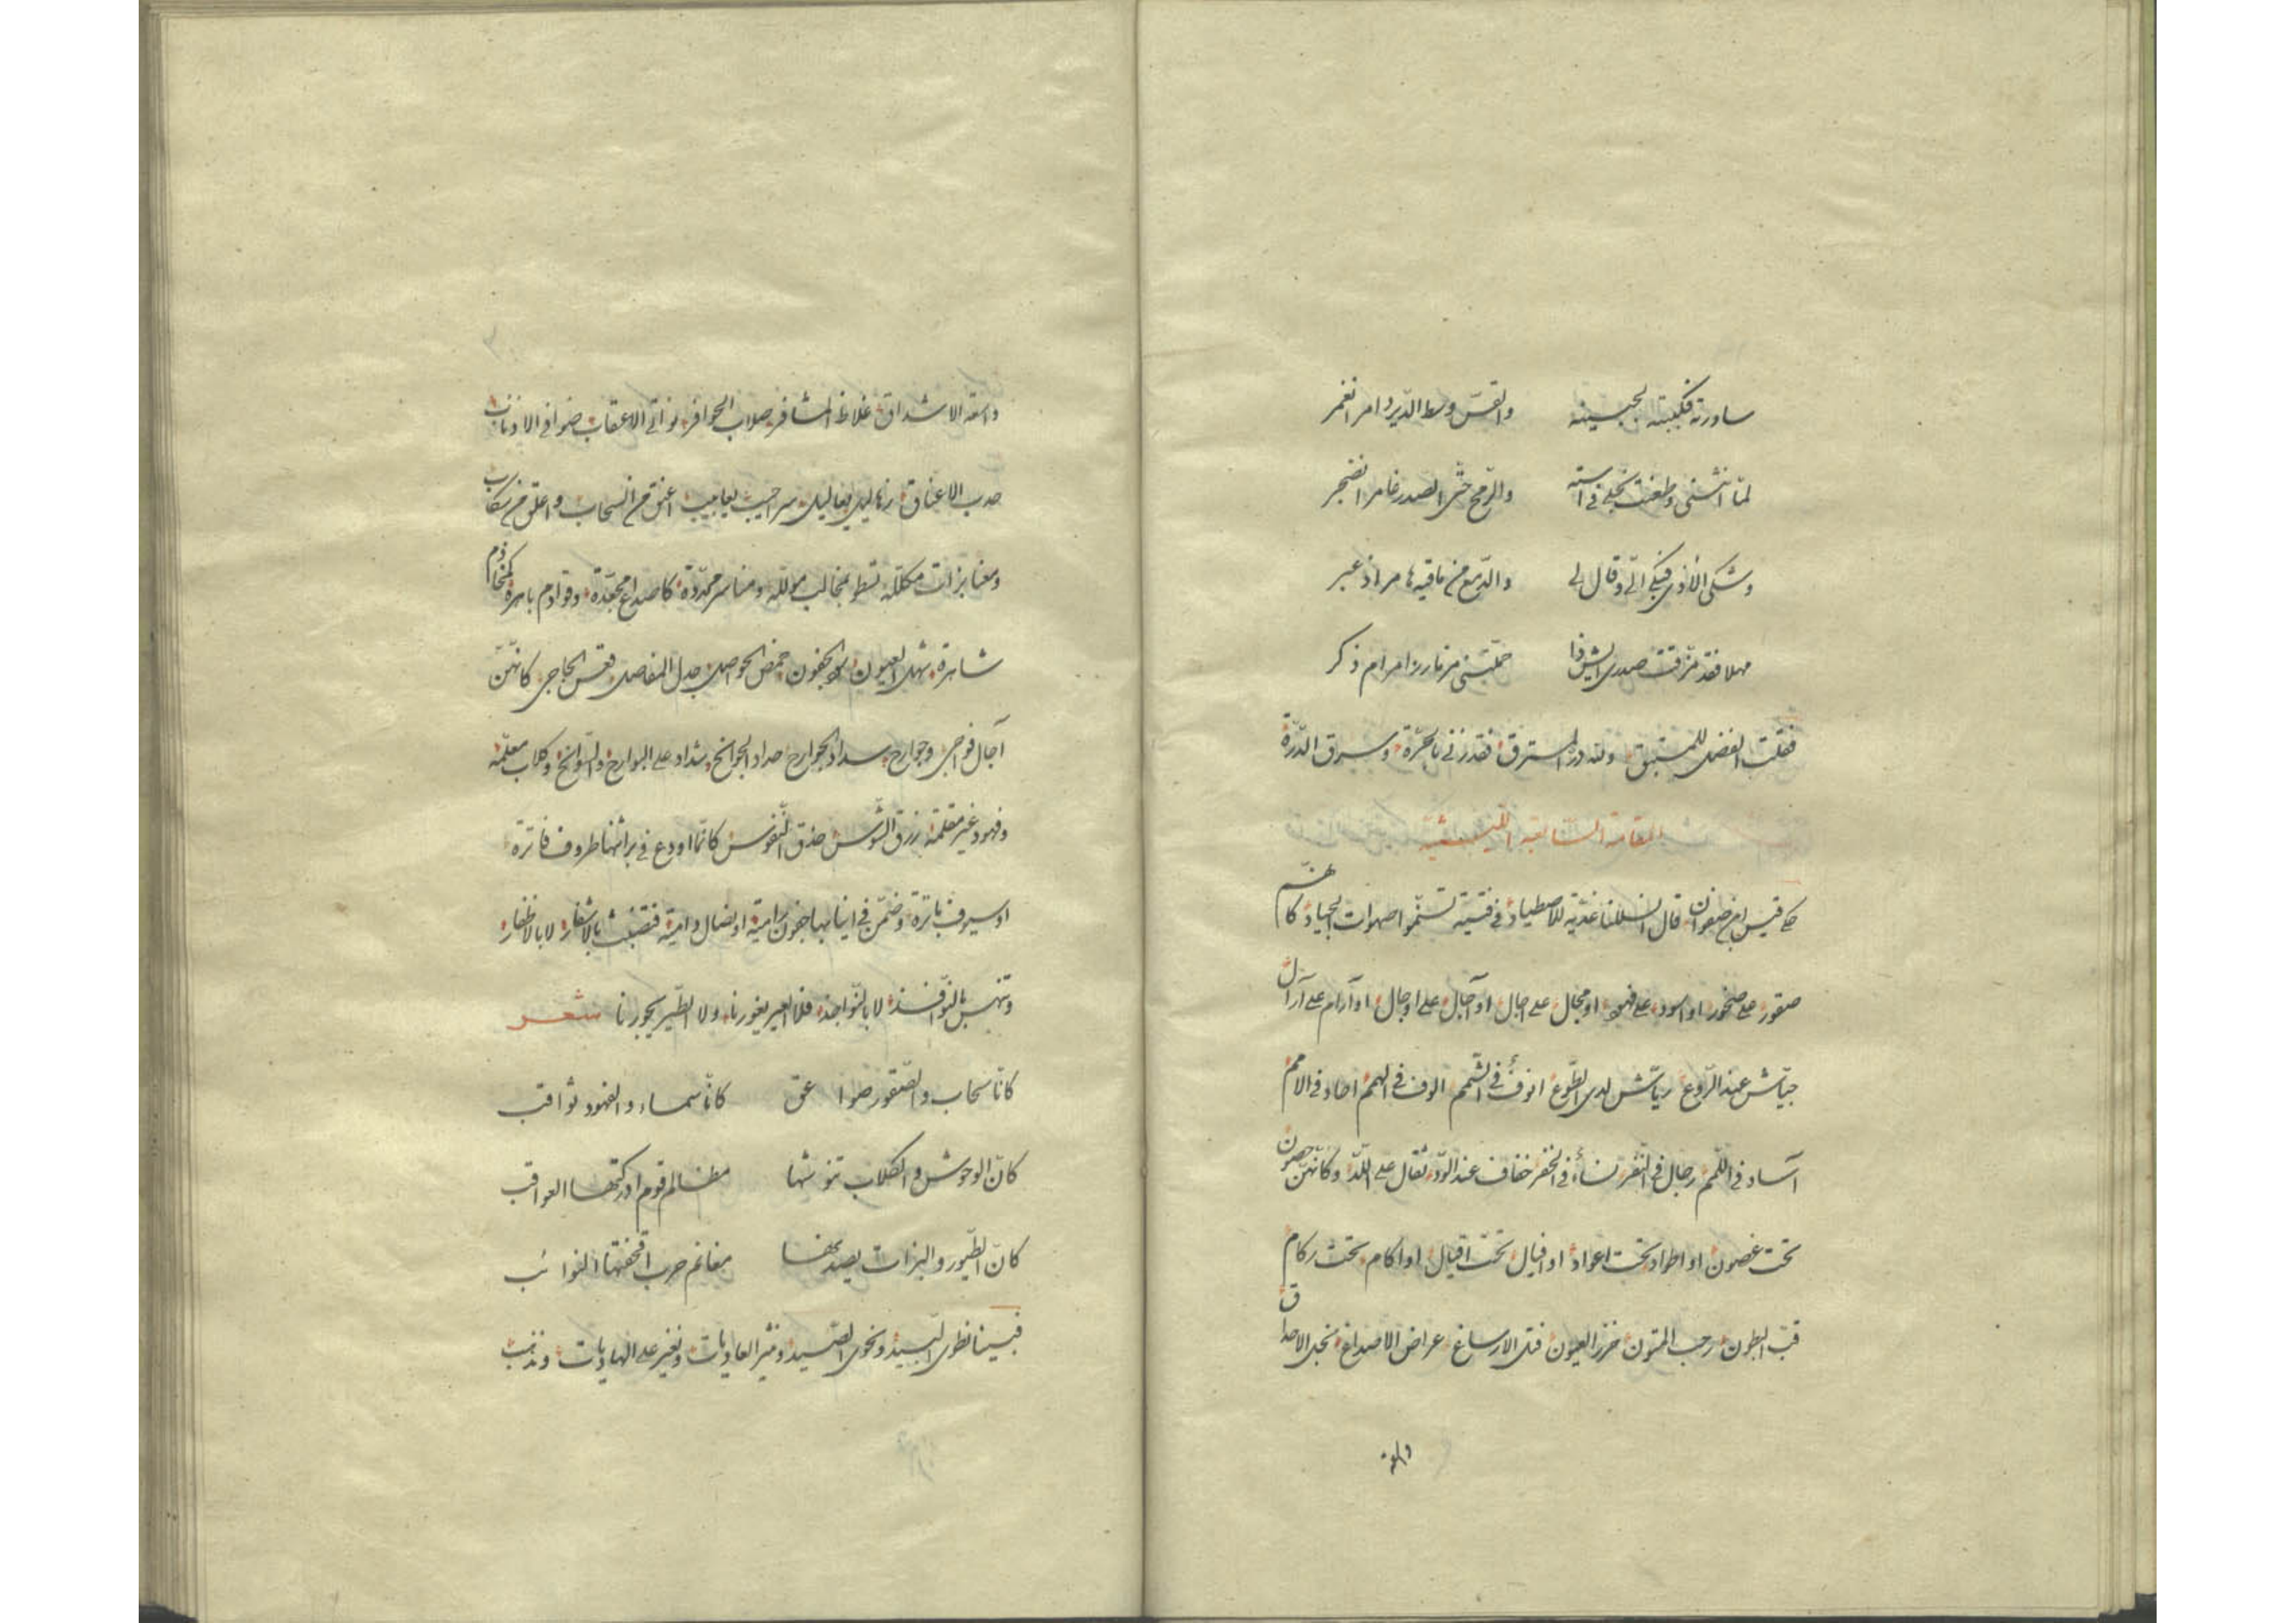 ساورته فكببته لجبينه والقسّ وسط الدّير دامر انغمر
لمّا انثنى وطعنت نجلى فى استه والرّمح حتّى الصدر غامر انضجر
وشكى الأذى فبكى الىّ وقال لى والدّمع من ماقيه هامر اذ عبر
مهلا فقد مزّقت صدرى حمّلتنى من نار زامر ام ذكر
فقلت الفضل للمستبق ولله درّ المسترق فقد زنى بالحرّة وسرق الدّرّة
المقامة السّابعة
حكى قيس بن صفوان قال انسللنا غدية للاصطياد فى فتية تسنّموا صهوات الجياد كانهم
صقور على صخور او اسود على فهود او مجال على جبال او آجال على اوجال او آرام على آرال
جيّاش عند الرّوع ريّاش لدى الطّوع انوف فى الشّمم الوف فى الهمم احاد فى الامم
آساد فى اللّمم رجال فى النّفر نساء فى الخفر خفاف عند الودّ ثقال على اللدّ وكانّهنّ حصون
تحت غصون او اطواد تحت اعواد او افيال تحت اقيال او اكام تحت ركام
قبّ البطون رحب المتون خزر العيون فتل الارساغ عراض الاصداغ نجل الاحداق
واسعة
واسعة الاشداق غلاظ المشافر صلاب الحوافر نواتى الاعقاب ضوافى الاذناب
حدب الاعناق يعاليل سراحيب يعابيب اعنق من السّحاب واعلق من سكاب
ومعنا بزات مكلّلة تسطو بمخالب مولّلة ومناسر محدّدة كاصداغ مجعّدة وقوادم باهرة كمخاذم
شاهرة شهل العيون الجفون خمص الحواصل جدل المفاصل قعس الحجاجى كانهنّ
آجال فواجى وجوارح سداد الجوارح حداد الجوانح شداد على البوارح والسّوانح وكلاب معلّمة
وفهود غير مقلمة زرق الشّوس حذق النّفوس كانّما اودع فى براثنها ظروف فاترة
او سيوف باترة وضمّن فى انيابها جفون رامية او نصال دامية فتضبث بالاشفار لا بالاظفار
وتنهس بالنّوافذ لا بالنّواجذ فلا العير يغورنا ولا الطّير يجورنا شعر
كانّا سحاب والصّقور صواعق كانّا سماء والفهود ثواقب
كانّ الوحوش والكلاب تنوشها مظالم قوم ادركتها العواقب
كانّ الطّيور والبزات يصدنها مغانم حرب اقحفتها النوائب
فبينا نطوى البيد ونحوى الصّيد ونثير العاديات ونغير على الهاديات ونذهب